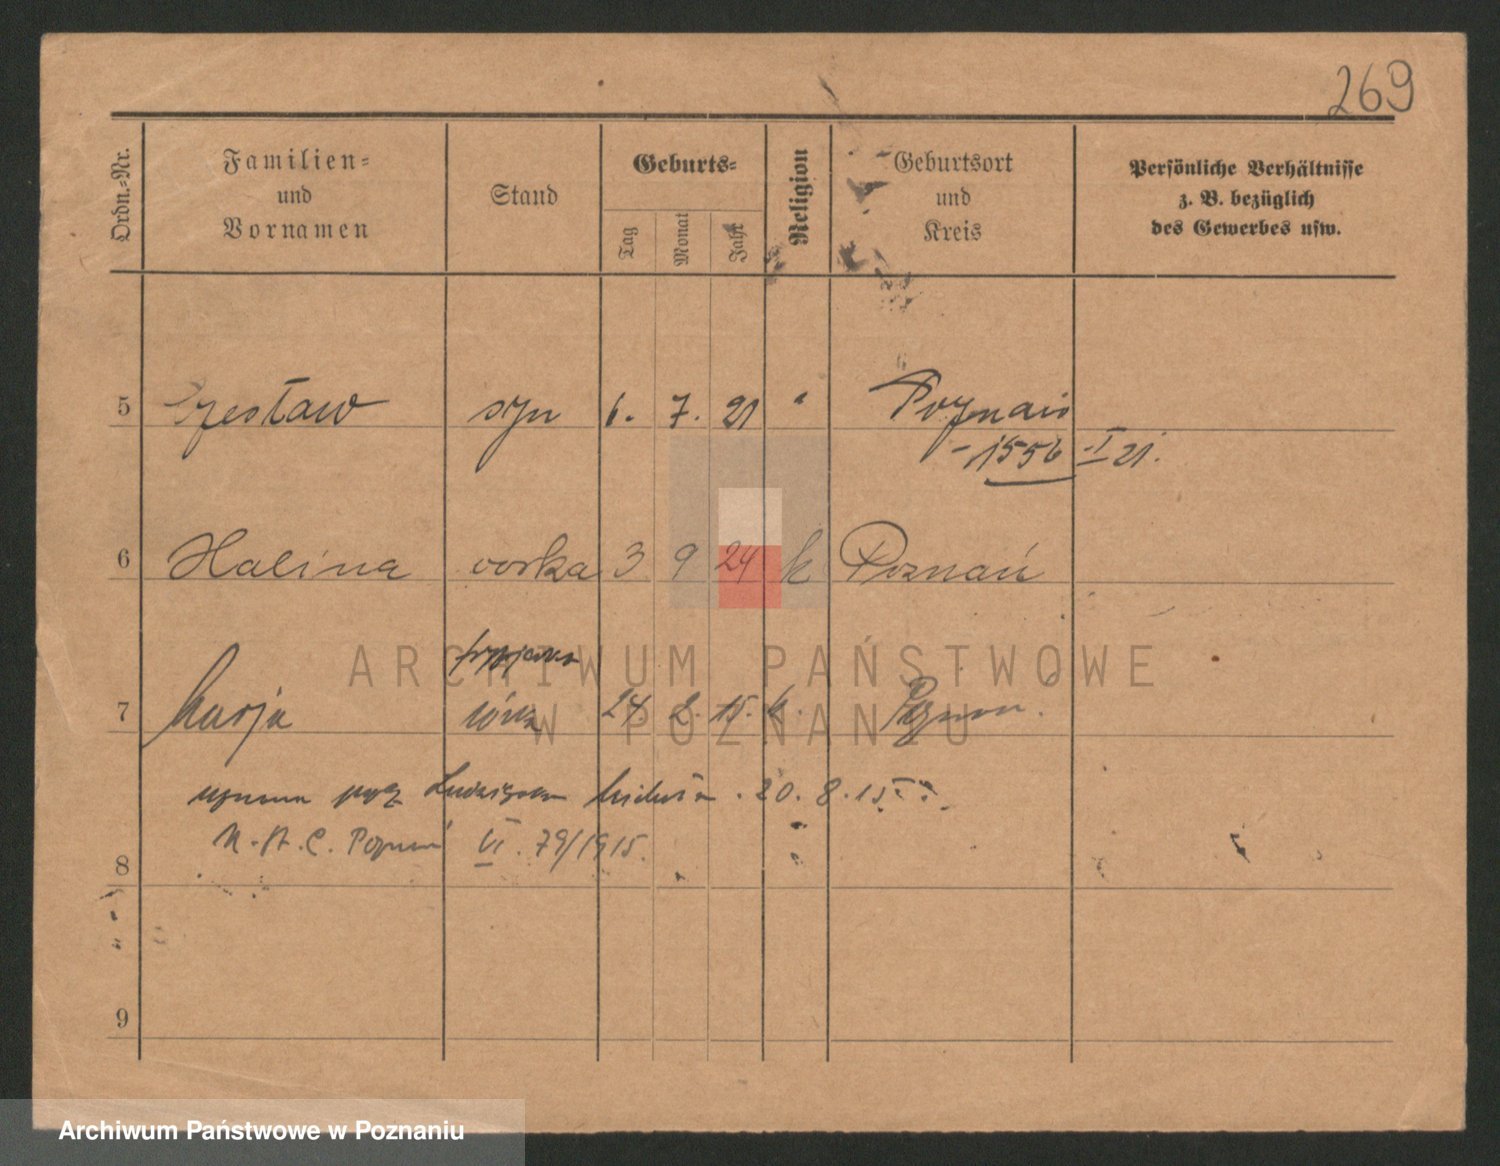 269
Ordn.-Nr.
Familien-
und
Vornamen
Stand
Geburts-
Tag
Monat
Jahr
Religion
Geburtsort
und
Kreis
Persönliche Verhältnisse
z. B. bezüglich
des Gewerbes usw.
5 Czesław syn 6. 7. 21 Poznań
- 1556 - I 21.
6 Halina córka 3 9 24 k Poznań
7 Marja córka 24. 2. 15. k. Poznań.
uznana przez 20. 8. 15
U.S.C. Poznań VI. 79/1915.
8
9
ARCHIWUM PAŃSTWOWE
W POZNANIU
Archiwum Państwowe w Poznaniu